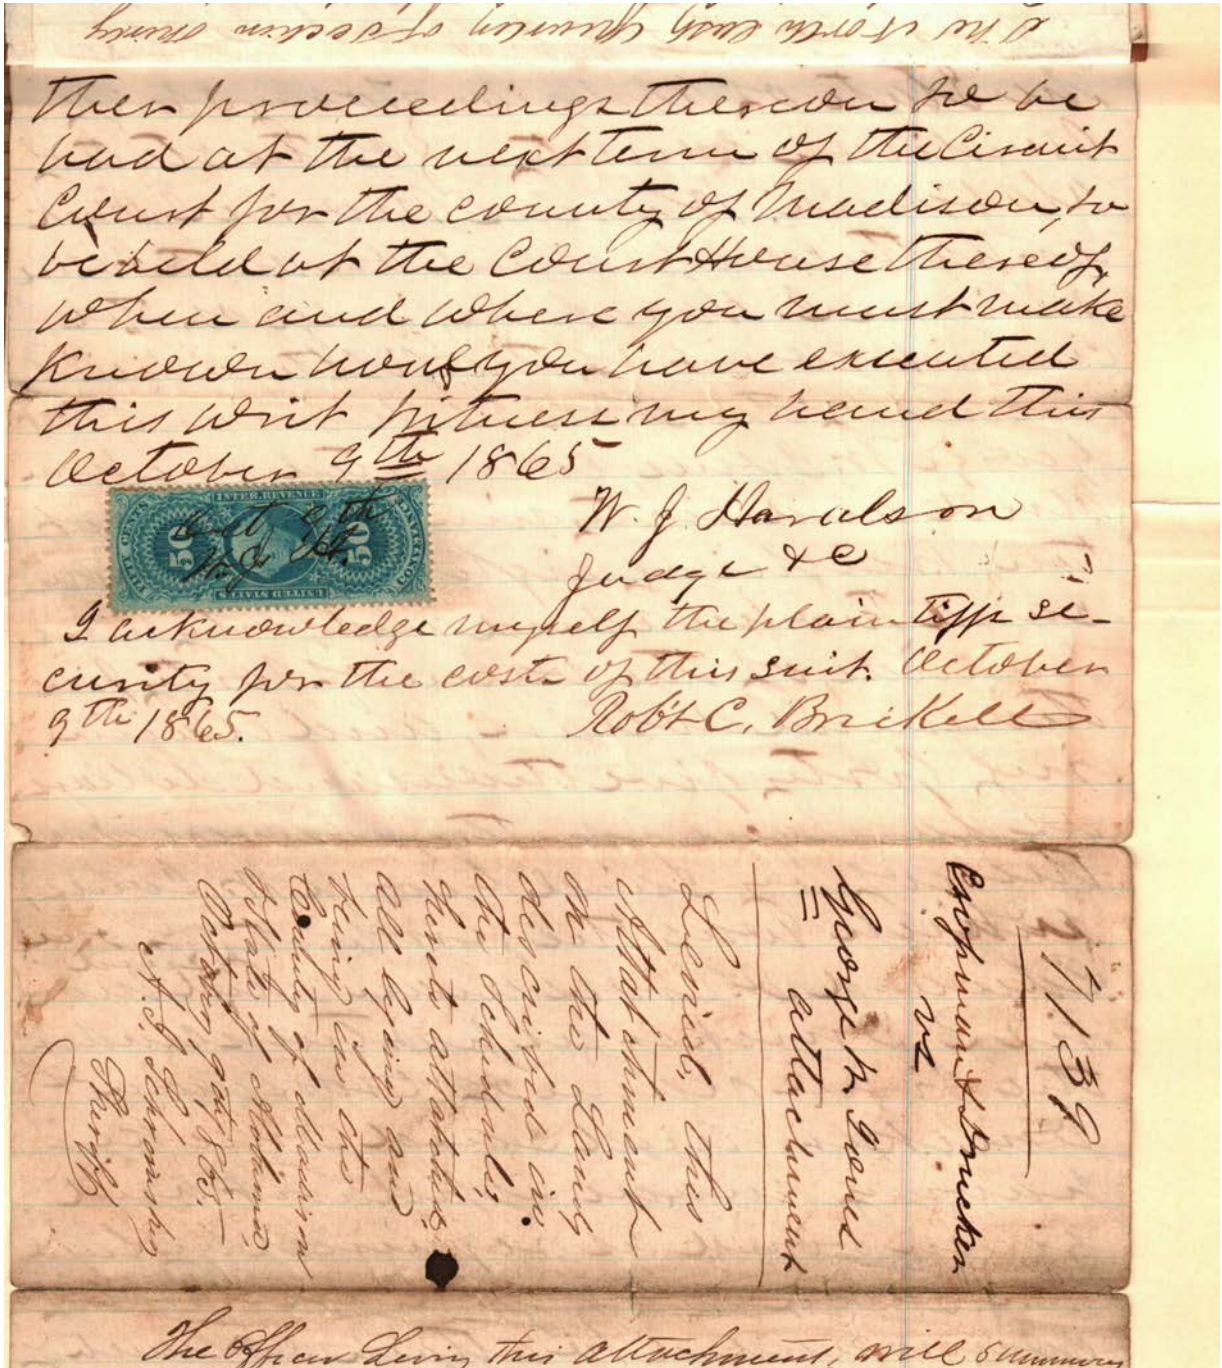 The North East Quarter of Section thirty
ther proceedings thereon to be
had at the next term of the Circuit
Court for the county of Madison, to
be held at the Court House thereof,
when and where you must make
known how you have executed
this writ Witness my hand this
October 9th 1865
W. J. Haralson
Judge &C
INTER. REVENUE
FIFTY CENTS
50
50
CONVEYANCE
UNITED STATES
Oct 9th
W. J. H.
I acknowledge myself the plaintiffs se-
curity for the costs of this suit. October
9th 1865.
Robt C. Brickell
7139
Chapman & Drucker
vs
George W Jones
= attachment
Levied, this
Attatchment
on the Land
described in
the Schedule,
hunto attatched
all lying and
being in the
County of Madison
State of Alabama,
October 9th 1865.
Sheriff
The Officer Levin this attachment, will summon